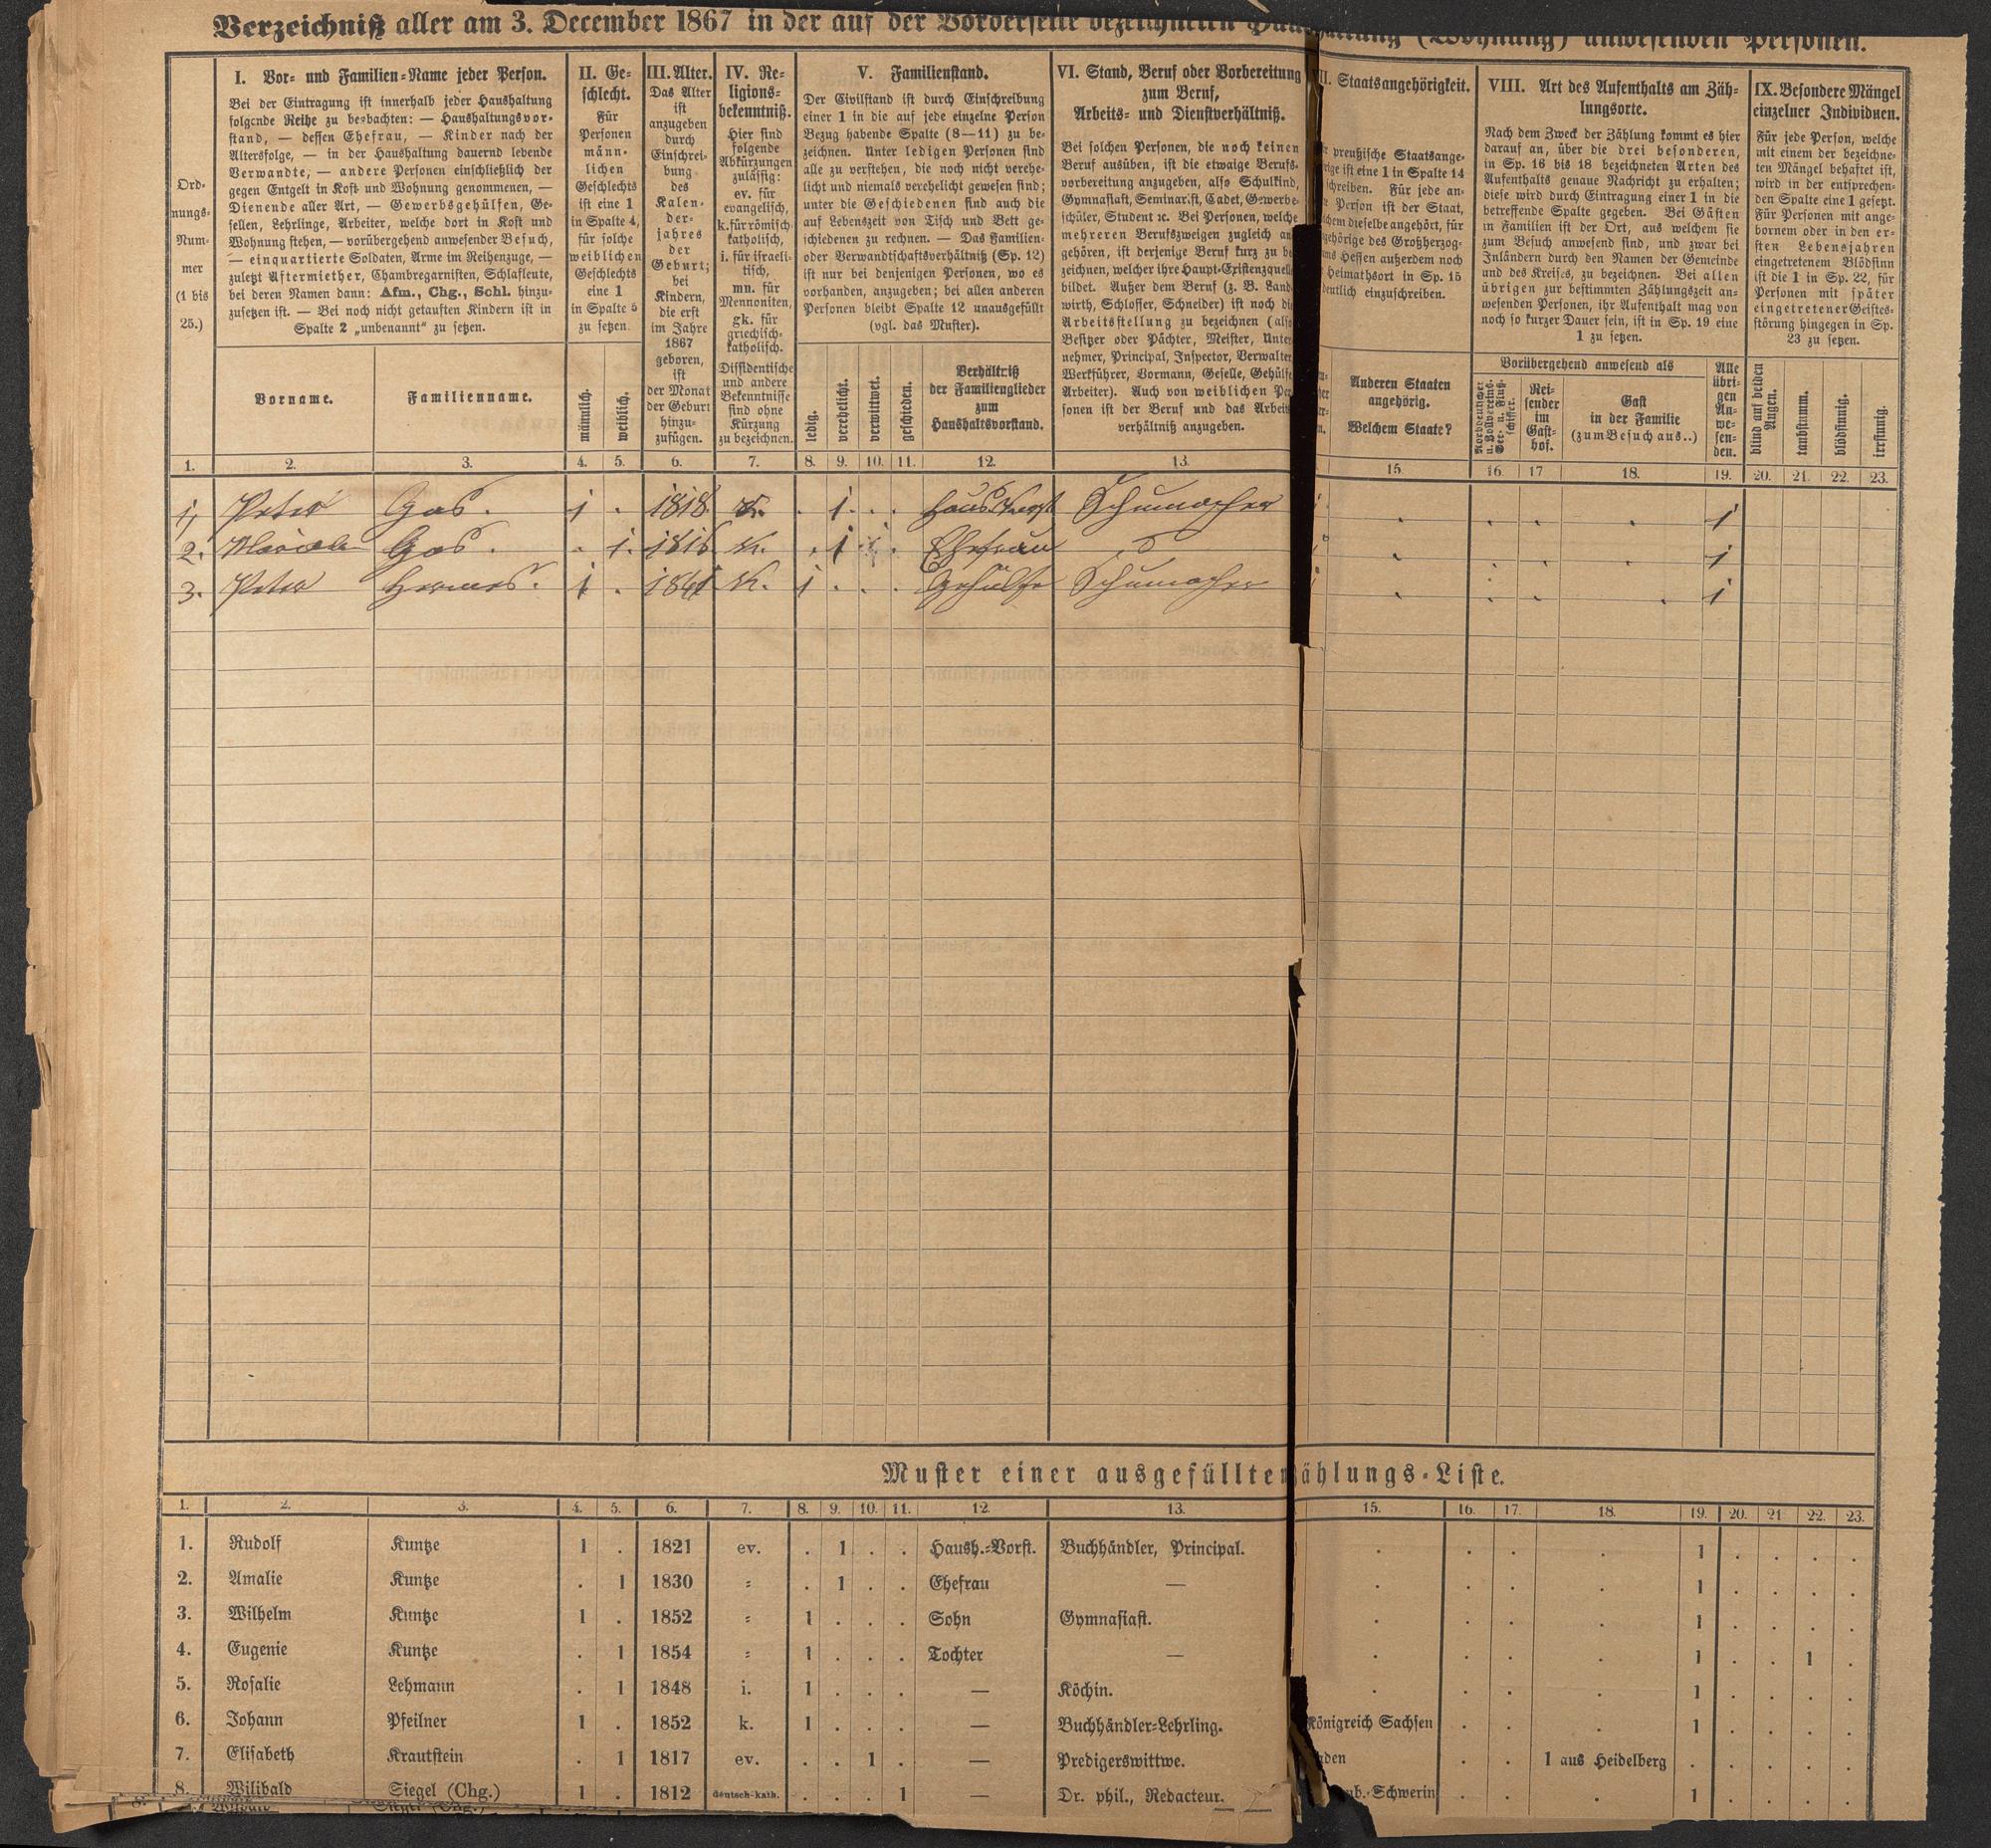 Verzeichniß aller am 3. December 1867 in der auf der Vorderseite bezeichneten Haushaltung (Wohnung) anwesenden Personen.
Ord-
nungs-
Num-
mer
(1 bis
25.)
I. Vor- und Familien-Name jeder Person.
Bei der Eintragung ist innerhalb jeder Haushaltung
folgende Reihe zu beobachten: — Haushaltungsvor-
stand, — dessen Ehefrau, — Kinder nach der
Altersfolge, — in der Haushaltung dauernd lebende
Verwandte, — andere Personen einschließlich der
gegen Entgelt in Kost und Wohnung genommenen, —
Dienende aller Art, — Gewerbsgehülfen, Ge-
sellen, Lehrlinge, Arbeiter, welche dort in Kost und
Wohnung stehen, — vorübergehend anwesender Besuch,
— einquartierte Soldaten, Arme im Reihenzuge, —
zuletzt Aftermiether, Chambregarnisten, Schlafleute,
bei deren Namen dann: Afm., Chg., Schl. hinzu-
zusetzen ist. — Bei noch nicht getauften Kindern ist in
Spalte 2 „unbenannt" zu setzen.
Vorname.
Familienname.
II. Ge-
schlecht.
Für
Personen
männ-
lichen
Geschlechts
ist eine 1
in Spalte 4,
für solche
weiblichen
Geschlechts
eine 1
in Spalte 5
zu setzen.
männlich.
weiblich.
III. Alter.
Das Alter
ist
anzugeben
durch
Einschrei-
bung
des
Kalen-
der-
jahres
der
Geburt;
bei
Kindern,
die erst
im Jahre
1867
geboren,
ist
der Monat
der Geburt
hinzu-
zufügen.
IV. Re-
ligions-
bekenntniß.
Hier sind
folgende
Abkürzungen
zulässig:
ev. für
evangelisch,
k. für römisch-
katholisch,
i. für israeli-
tisch,
mn. für
Mennoniten,
gk. für
griechisch-
katholisch.
Dissidentische
und andere
Bekenntnisse
sind ohne
Kürzung
zu bezeichnen.
V. Familienstand.
Der Civilstand ist durch Einschreibung
einer 1 in die auf jede einzelne Person
Bezug habende Spalte (8—11) zu be-
zeichnen. Unter ledigen Personen sind
alle zu verstehen, die noch nicht verehe-
licht und niemals verehelicht gewesen sind;
unter die Geschiedenen sind auch die
auf Lebenszeit von Tisch und Bett ge-
schiedenen zu rechnen. — Das Familien-
oder Verwandtschaftsverhältniß (Sp. 12)
ist nur bei denjenigen Personen, wo es
vorhanden, anzugeben; bei allen anderen
Personen bleibt Spalte 12 unausgefüllt
(vgl. das Muster).
ledig.
verehelicht.
verwittwet.
geschieden.
Verhältniß
der Familienglieder
zum
Haushaltsvorstand.
VI. Stand, Beruf oder Vorbereitung
zum Beruf,
Arbeits- und Dienstverhältniß.
Bei solchen Personen, die noch keinen
Beruf ausüben, ist die etwaige Berufs-
vorbereitung anzugeben, also Schulkind,
Gymnasiast, Seminarist, Cadet, Gewerbe-
schüler, Student ꝛc. Bei Personen, welche
mehreren Berufszweigen zugleich an
gehören, ist derjenige Beruf kurz zu be
zeichnen, welcher ihre Haupt-Existenzquelle
bildet. Außer dem Beruf (z. B. Land
wirth, Schlosser, Schneider) ist noch die
Arbeitsstellung zu bezeichnen (also
Besitzer oder Pächter, Meister, Unter
nehmer, Principal, Inspector, Verwalter
Werkführer, Vormann, Geselle, Gehülfe
Arbeiter). Auch von weiblichen Per
sonen ist der Beruf und das Arbeits
verhältniß anzugeben.
II. Staatsangehörigkeit.
preußische Staatsange-
rige ist eine 1 in Spalte 14
schreiben. Für jede an-
Person ist der Staat,
chem dieselbe angehört, für
gehörige des Großherzog-
ms Hessen außerdem noch
Heimathsort in Sp. 15
deutlich einzuschreiben.
Anderen Staaten
angehörig.
Welchem Staate?
VIII. Art des Aufenthalts am Zäh-
lungsorte.
Nach dem Zweck der Zählung kommt es hier
darauf an, über die drei besonderen,
in Sp. 16 bis 18 bezeichneten Arten des
Aufenthalts genaue Nachricht zu erhalten;
diese wird durch Eintragung einer 1 in die
betreffende Spalte gegeben. Bei Gästen
in Familien ist der Ort, aus welchem sie
zum Besuch anwesend sind, und zwar bei
Inländern durch den Namen der Gemeinde
und des Kreises, zu bezeichnen. Bei allen
übrigen zur bestimmten Zählungszeit an-
wesenden Personen, ihr Aufenthalt mag von
noch so kurzer Dauer sein, ist in Sp. 19 eine
1 zu setzen.
Vorübergehend anwesend als
Norddeutscher
u. Zollvereins-
See- u. Fluß-
schiffer.
Rei-
sender
im
Gast-
hof.
Gast
in der Familie
(zum Besuch aus..)
Alle
übri-
gen
An-
we-
sen-
den.
IX. Besondere Mängel
einzelner Individuen.
Für jede Person, welche
mit einem der bezeichne-
ten Mängel behaftet ist,
wird in der entsprechen-
den Spalte eine 1 gesetzt.
Für Personen mit ange-
bornem oder in den er-
sten Lebensjahren
eingetretenem Blödsinn
ist die 1 in Sp. 22, für
Personen mit später
eingetretener Geistes-
störung hingegen in Sp.
23 zu setzen.
blind auf beiden
Augen.
taubstumm.
blödsinnig.
irrsinnig.
1. 2. 3. 4. 5. 6. 7. 8. 9. 10. 11. 12. 13. 15. 16. 17 18. 19. 20. 21. 22. 23.
1, Peter Gas. 1 . 1818 K. . 1 . . Schumacher . . . . 1
2. Gas. . 1. 1816 K. . 1 . Ehefrau . . . . 1
3. Peter Hermes. 1 . K. 1 . . . Gehülfe Schumacher . . . . 1
Muster einer ausgefüllten ählungs-Liste.
1. 2. 3. 4. 5. 6. 7. 8. 9. 10. 11. 12. 13. 15. 16. 17. 18. 19. 20. 21 22. 23.
1. Rudolf Kuntze 1 . 1821 ev. . 1 . . Haush.-Vorst. Buchhändler, Principal. . . . . 1 . . . .
2. Amalie Kuntze . 1 1830 = . 1 . . Ehefrau — . . . . 1 . . . .
3. Wilhelm Kuntze 1 . 1852 = 1 . . . Sohn Gymnasiast. . . . . 1 . . . .
4. Eugenie Kuntze . 1 1854 = 1 . . . Tochter — . . . . 1 . . 1 .
5. Rosalie Lehmann . 1 1848 i. 1 . . . — Köchin. . . . . 1 . . . .
6. Johann Pfeilner 1 . 1852 k. 1 . . . — Buchhändler-Lehrling. Königreich Sachsen . . . 1 . . . .
7. Elisabeth Krautstein . 1 1817 ev. . . 1 . — Predigerswittwe. den . . 1 aus Heidelberg . . . . .
8. Wilibald Siegel (Chg.) 1 . 1812 deutsch-kath. . . . 1 — Dr. phil., Redacteur. nb.-Schwerin . . . 1 . . . .